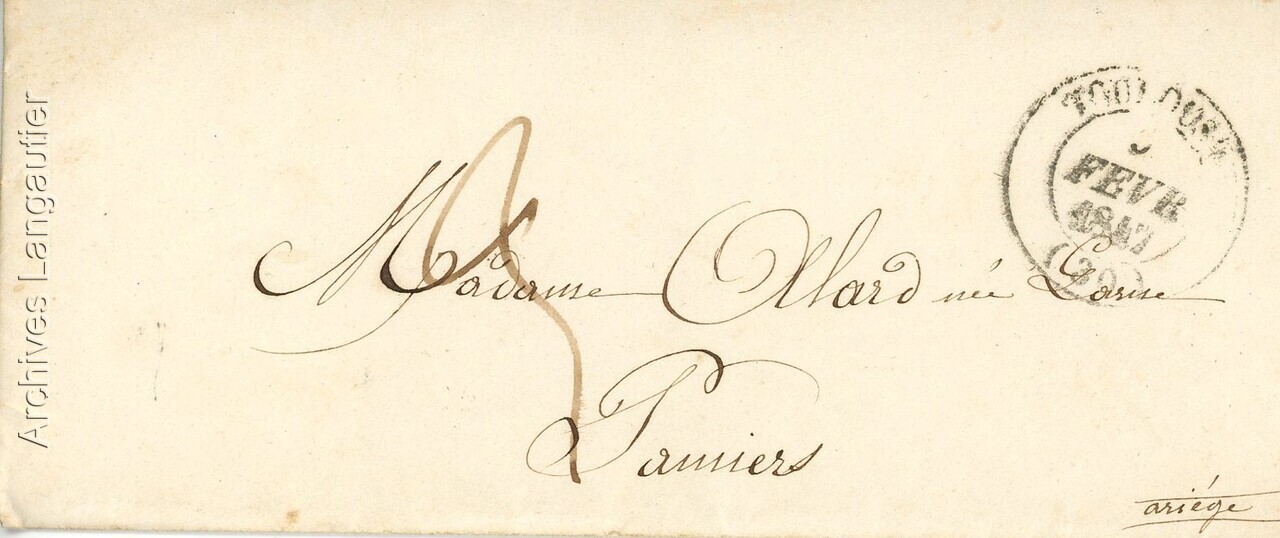 Archives Langautier
TOULOUSE
5
FEVR
1847
(30)
3
Madame Allard née
Pamiers
ariége